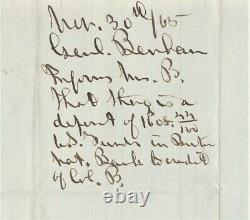 Nov. 30th/65
Genl. Benham
Informs Mrs. B.
That there is a
deposit of 1608 22/100
U.S. Funds in
Nat. Bank to credit
of Col. B.